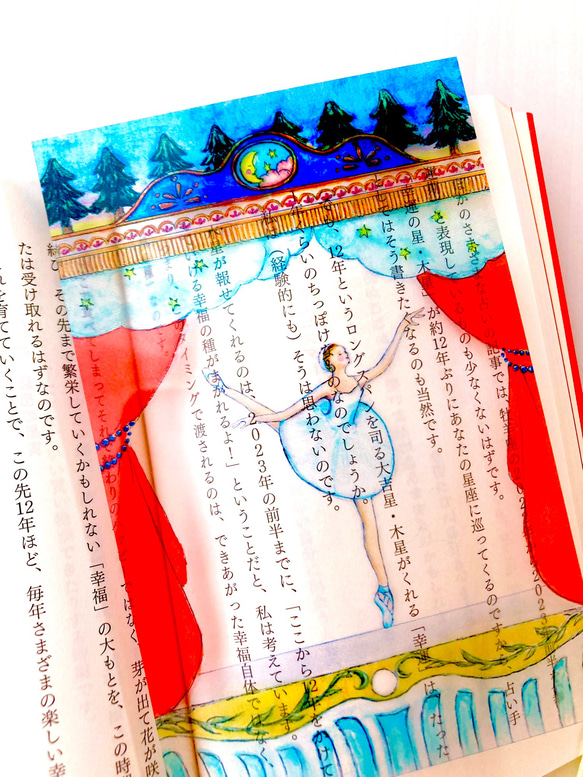 ほかのさまざまな占いの記事では、
と表現しているものも少なくないはずです。
幸運の星・木星」が約12年ぶりにあなたの星座に巡ってくるのですから、占い手
としてはそう書きたくなるのも当然です。
12年というロングスパンを司る大吉星・木星がくれる「幸運」は、たった
くらいのちっぽけなものなのでしょうか。
経験的にも）そうは思わないのです。
木星が報せてくれるのは、2023年の前半までに、「ここから12年をかけて
いける幸福の種がまかれるよ！」ということだと、私は考えています。
タイミングで渡されるのは、できあがった幸福自体ではない、
しまってそれで終わりの ではなく、芽が出て花が咲
その先まで繁栄していくかもしれない「幸福」の大もとを、この時
たは受け取れるはずなのです。
れを育てていくことで、この先12年ほど、毎年さまざまの楽しい幸